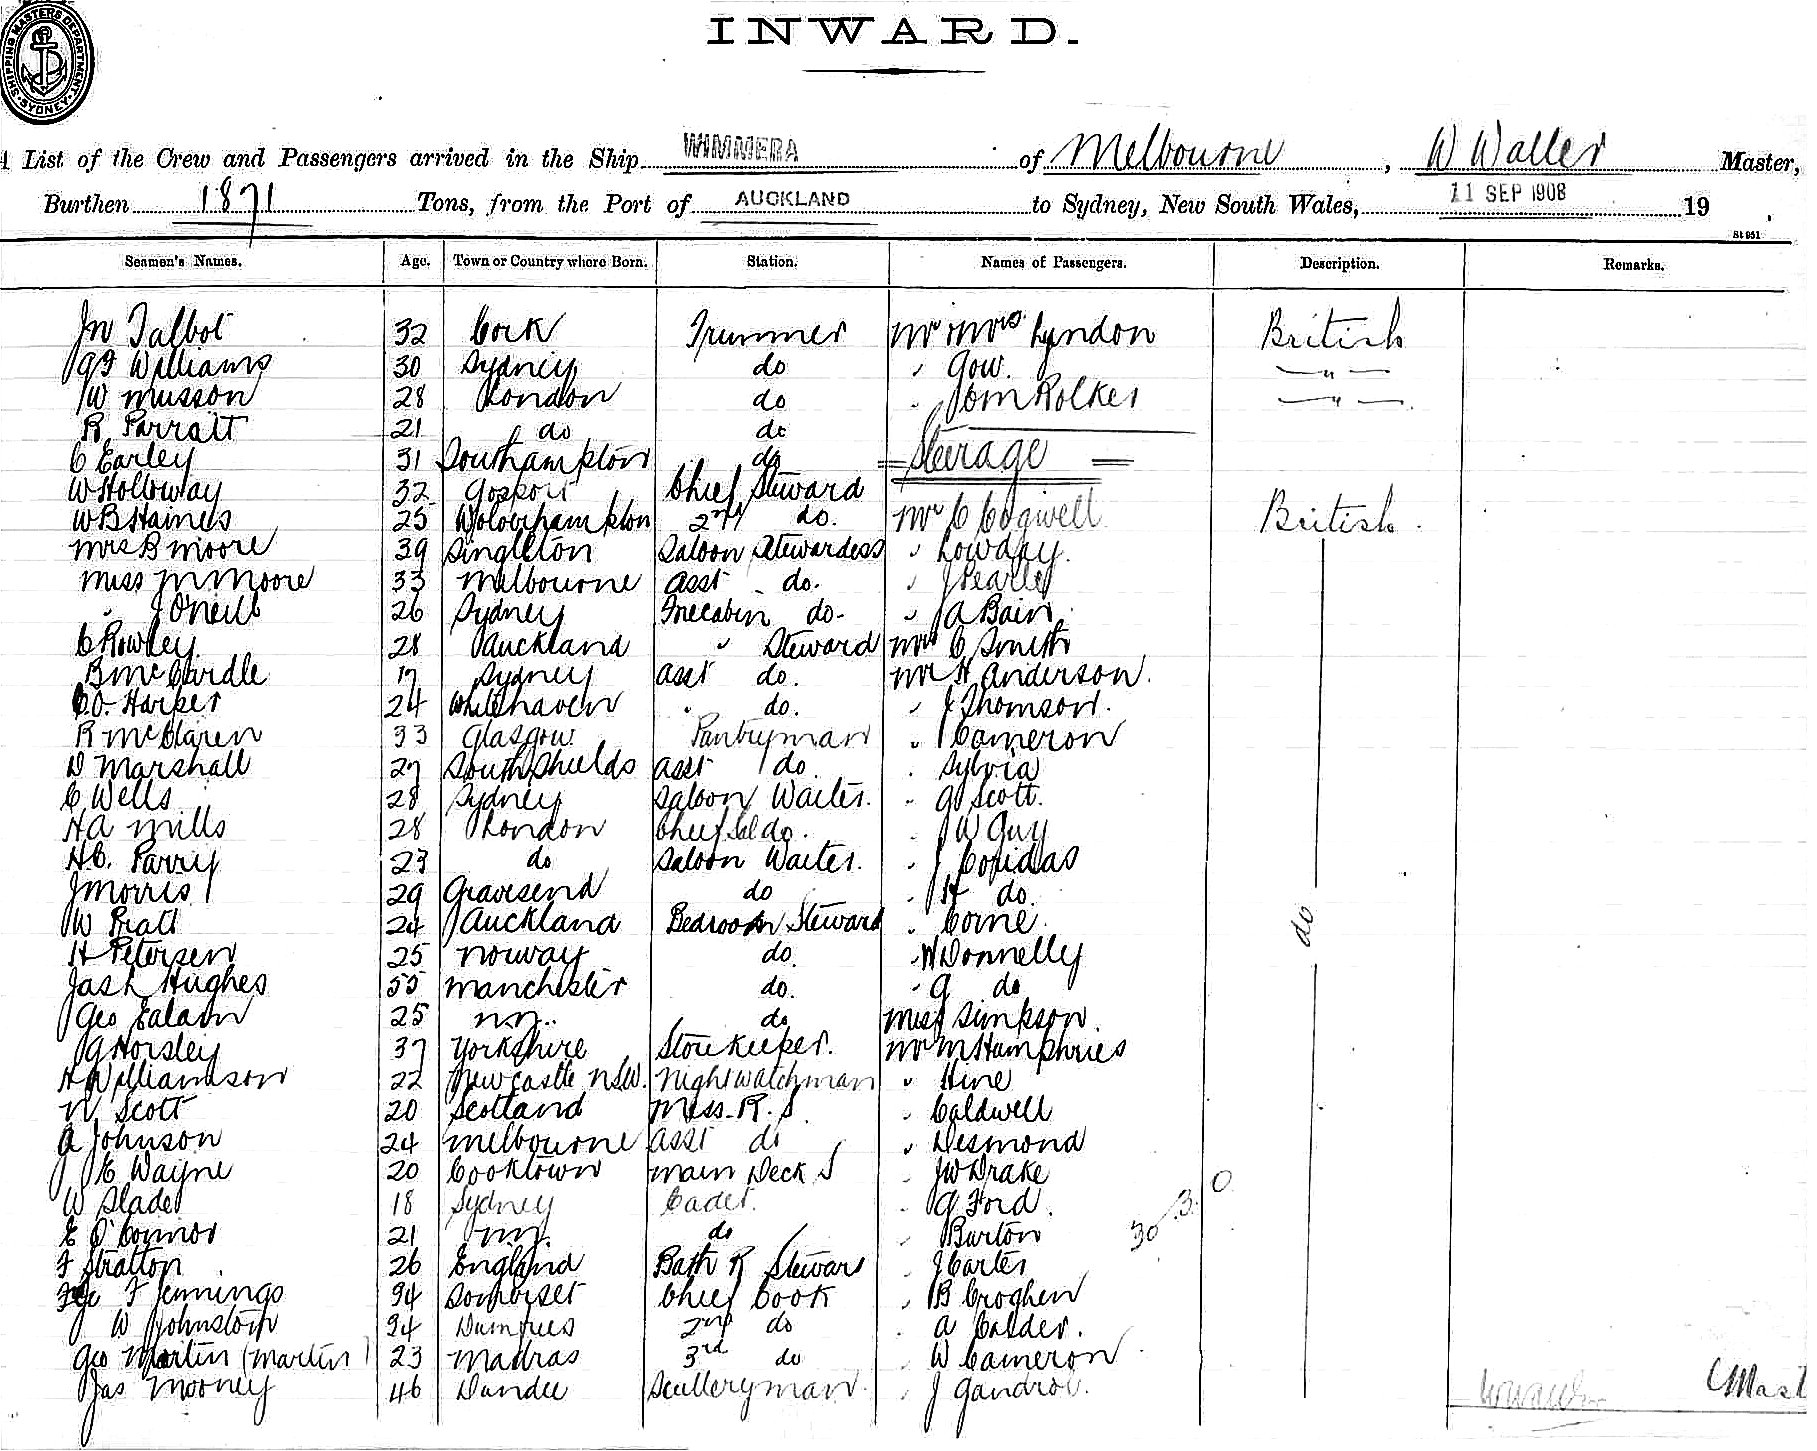 SHIPPING MASTERS DEPARTMENT SYDNEY
INWARD.
List of the Crew and Passengers arrived in the Ship WIMMERA of Melbourne, W Waller Master,
Burthen 1871 Tons, from the Port of AUCKLAND to Sydney, New South Wales, 11 SEP 1908 19
St 951
Seamen's Names. Age. Town or Country where Born. Station. Names of Passengers. Description. Remarks.
Jn Talbot 32 Cork Trimmer Mr & Mrs Lyndon British
Williams 30 Sydney do " Gow. — " —
W Musson 28 London do Tom Rolkes — " —
R Parratt 21 do do
C Earley 31 Southampton do = Steerage =
W Holloway 32 Gosport Chief Steward
W B Haines 25 Wolverhampton 2nd do. Mr C Cogwell British.
Mrs B Moore 39 Singleton Saloon Stewardess " Lowday.
Miss M Moore 33 Melbourne Asst do. " J Pearle
" J O'Neill 26 Sydney Forecabin do- " A Bain
C Rowley 28 Auckland " Steward Mrs C Smith
B McCardle 17 Sydney Asst do. Mr H Anderson.
C.O. Harper 24 Whitehaven " do. " J Thomson.
R McClaren 33 Glasgow Pantryman " Cameron
D Marshall 27 South Shields Asst do. " Sylvia
C Wells 28 Sydney Saloon Waiter. " G Scott.
H A Mills 28 London Chief Sal do. " W Guy
H C. Parry 23 do Saloon Waiter. " J Comidas
J Morris 29 Gravesend do " H do.
W Pratt 24 Auckland Bedroom Steward " Corne
H Petersen 25 Norway do. " W Donnelly do
Jas L Hughes 55 Manchester do. " G do
Geo Ealam 25 do Miss Simpson.
G Horsley 37 Yorkshire Storekeeper. Mr M Humphries
H Williamson 22 Newcastle NSW. Nightwatchman " Hine
N Scott 20 Scotland Mess. R. S " Caldwell
A Johnson 24 Melbourne Asst do " Desmond
E Wayne 20 Cooktown Main Deck S " J W Drake
W Slade 18 Sydney Cadet. " G Ford. 30 3. 0
E O'Connor 21 do " Burton
F Stratton 26 England Bath R Steward " J Carter
F Jennings 34 Somerset Chief Cook " B Croghen
W Johnston 34 Dumfries 2nd do " A Calder.
Geo Martin (Martin) 23 Madras 3rd do " W Cameron
Jas Mooney 46 Dundee Sculleryman. " J Gandrov.
Mast